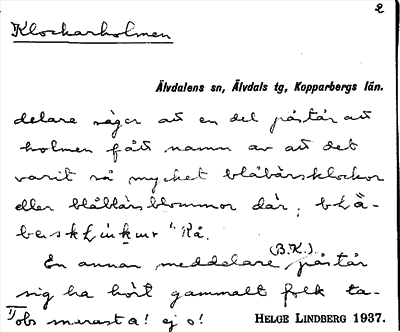 2
Klockarholmen
Älvdalens sn, Älvdals tg, Kopparbergs län.
delare säger att en del påstår att
holmen fått namn av att det
varit så mycket blåbärsklockor
eller blåbärsblommor där; blå-
En annan meddelare (B.K.) påstår
sig ha hört gammalt folk ta-
1/ obs merast a! ej o!
HELGE LINDBERG 1937.